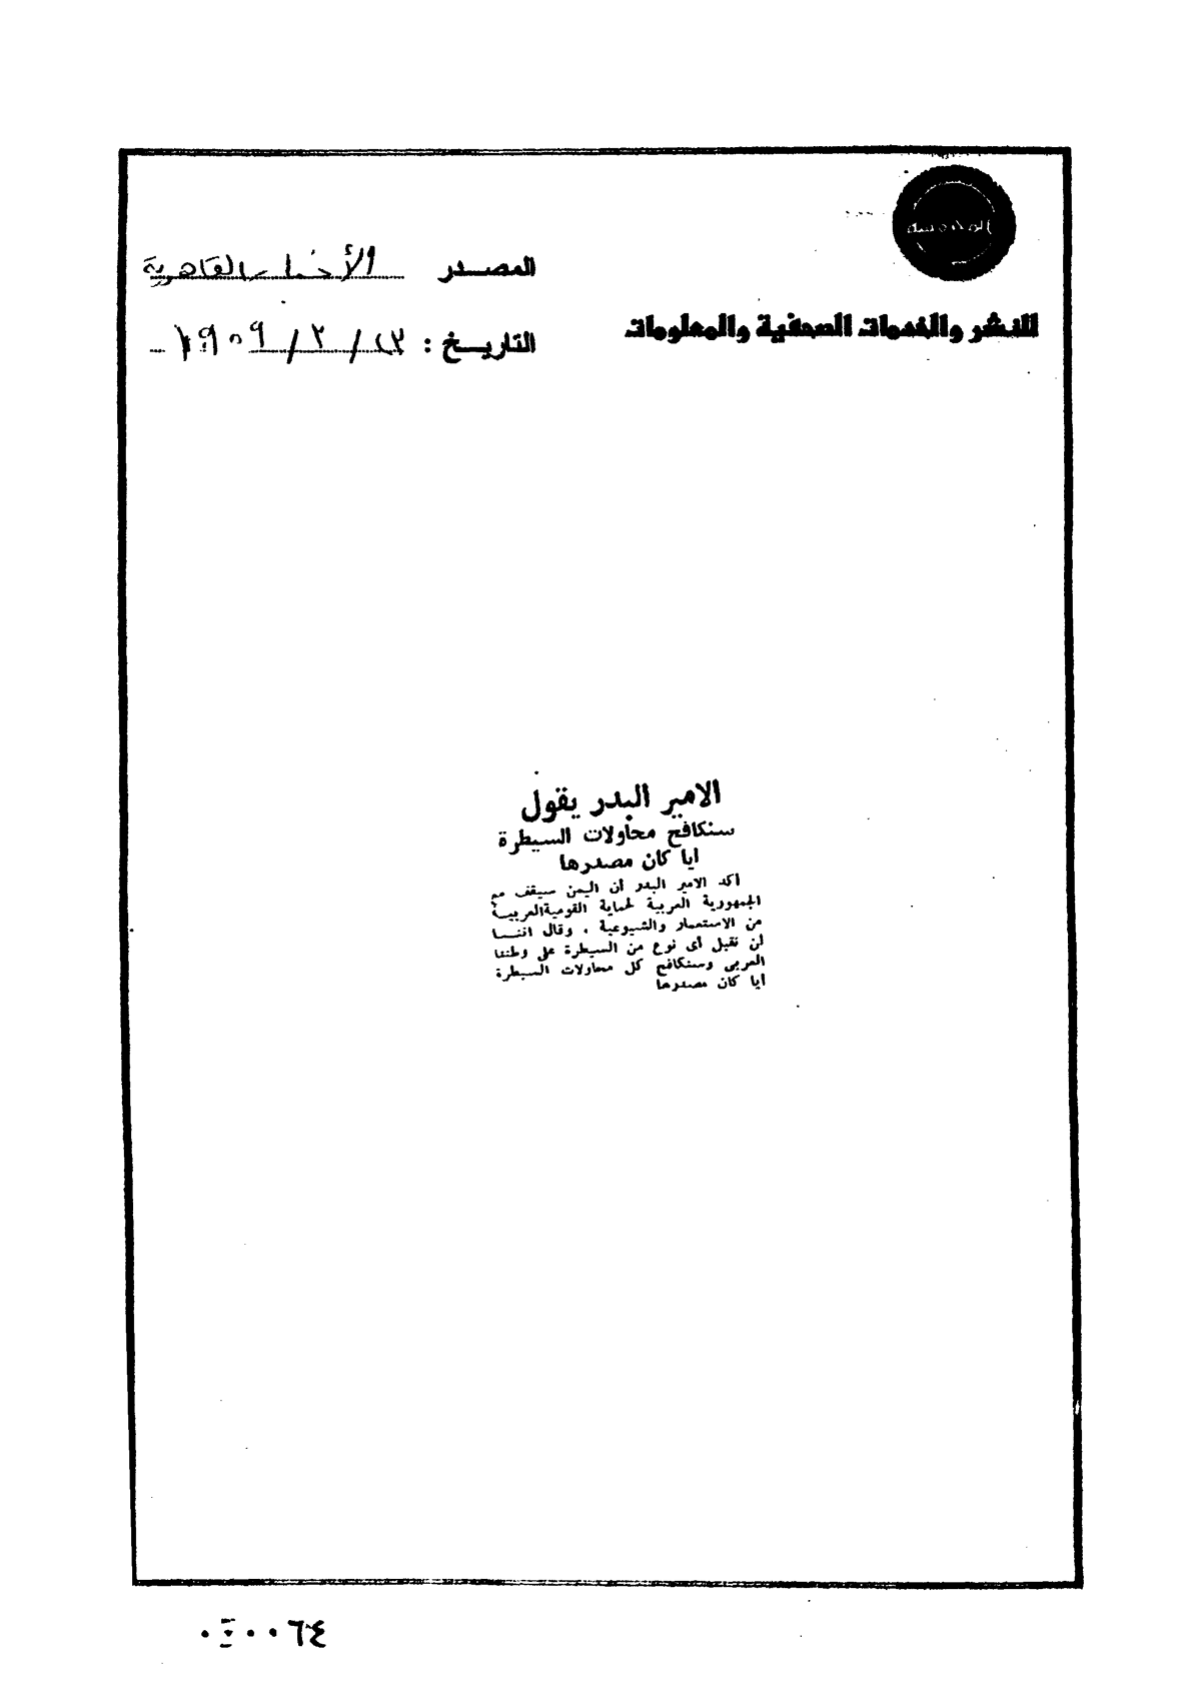 المصدر الأخبار القاهرية
للنشر والخدمات الصحفية والمعلومات
التاريخ : ٢٣ / ٣ / ١٩٥٩
الامير البدر يقول
سنكافح محاولات السيطرة
ايا كان مصدرها
أكد الامير البدر أن اليمن سيقف مع
الجمهورية العربية لحماية القومية العربية
من الاستعمار والشيوعية . وقال اننا
لن نقبل أى نوع من السيطرة على وطننا
العربى وسنكافح كل محاولات السيطرة
أيا كان مصدرها
٠٠٦٤